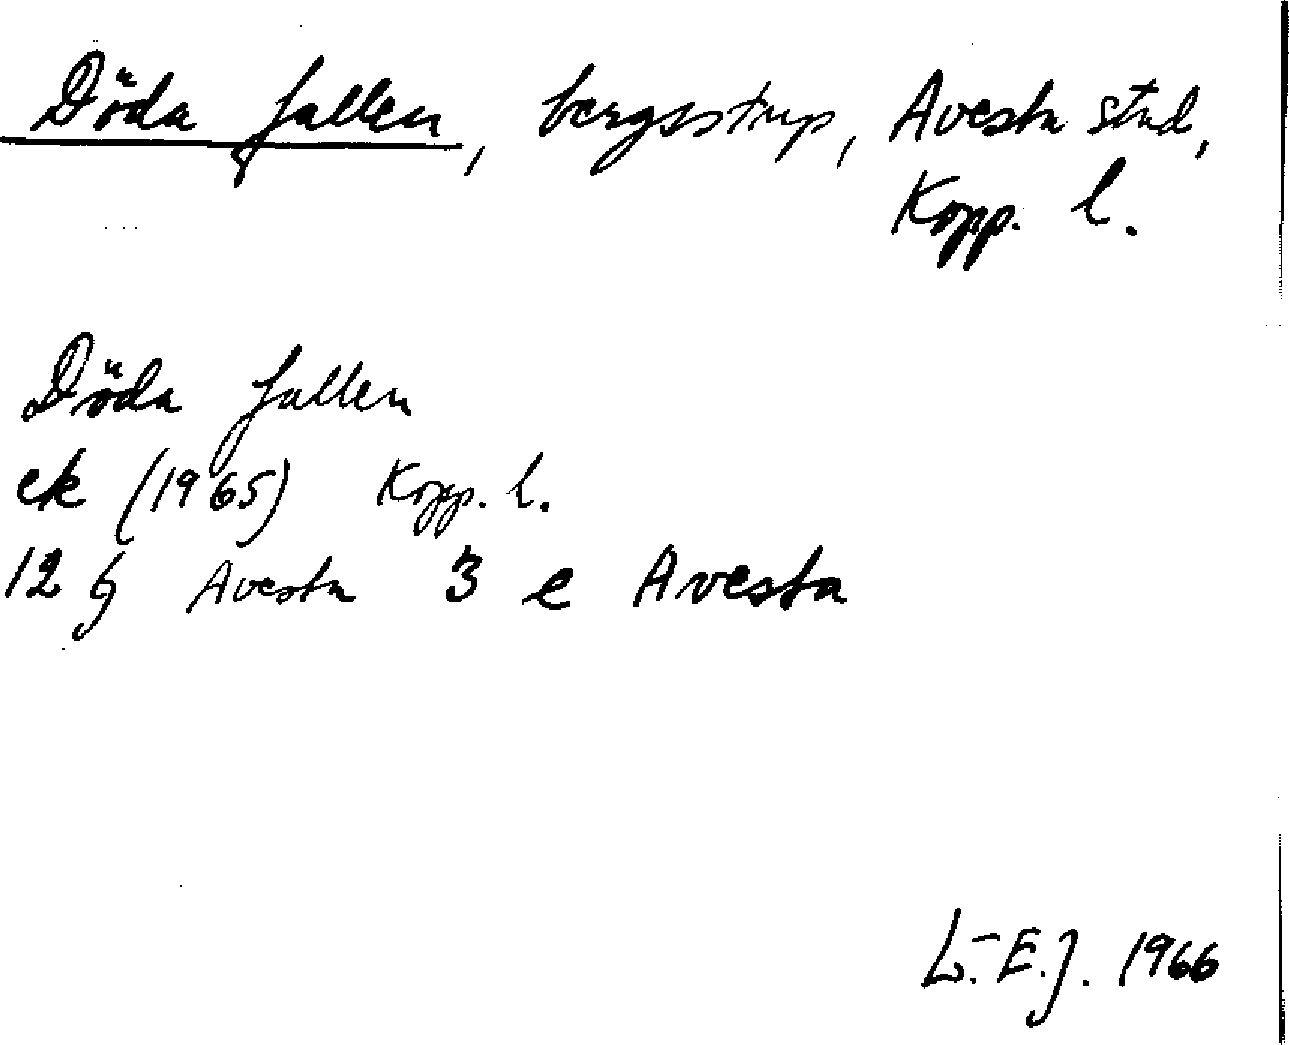 Döda fallen, bergsstup, Avesta stad,
Kopp. l.
Döda fallen
ek (1965) Kopp. l.
12 G Avesta 3 e Avesta
L.-E.J. 1966